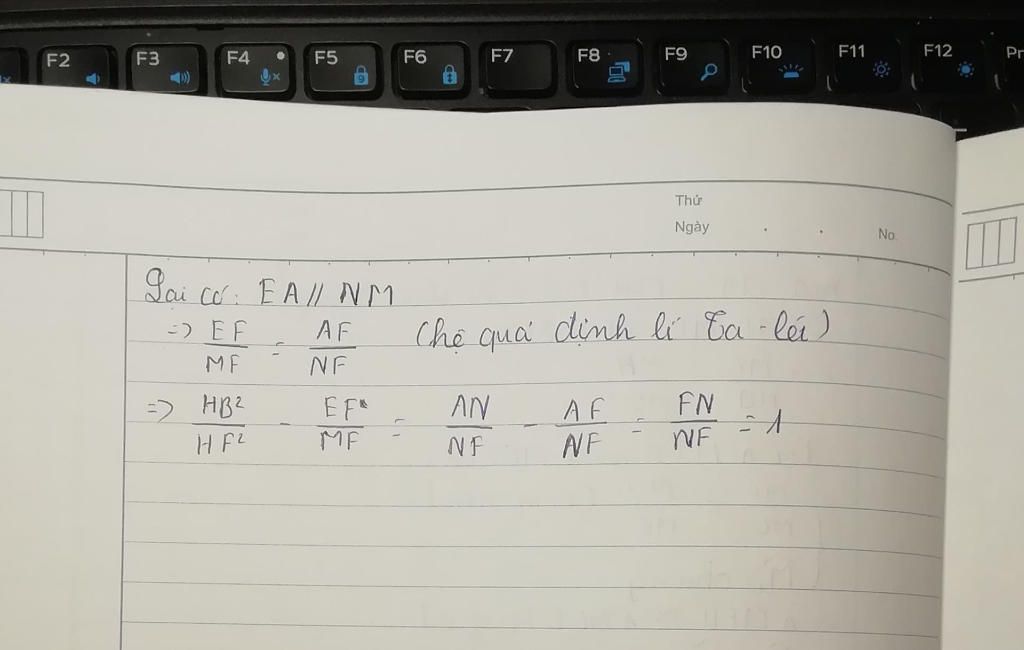 F2 F3 F4 F5 F6 F7 F8 F9 F10 F11 F12 Pr
Thứ
Ngày . . No.
Lại có: EA // NM
=> EF/MF = AF/NF (hệ quả định lí Ta-lét)
=> HB²/HF² - EF/MF = AN/NF - AF/NF = FN/NF = 1